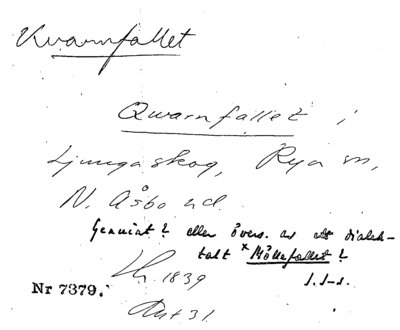 Kvarnfallet
Qwarnfallet i
Ljungaskog, Rya sn,
N. Åsbo hd.
Genuint? eller övers. av ett dialek-
talt * Möllefallet?
1839
Nr 7379.
31.